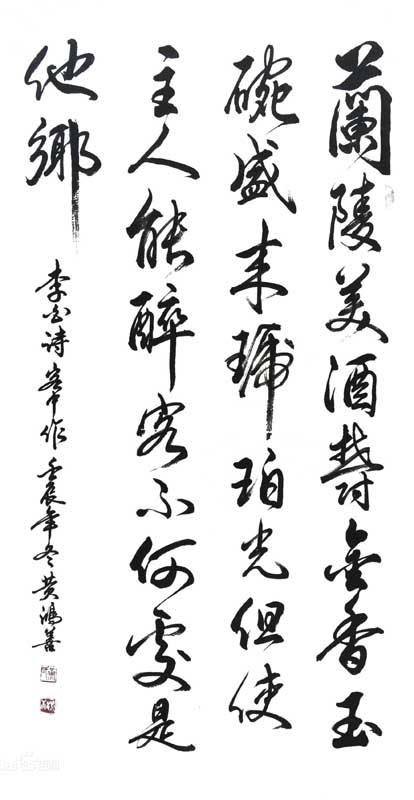 蘭陵美酒欝金香玉
碗盛来琥珀光但使
主人能醉客不何處是
他鄉
李白詩客中作壬辰年冬黄鴻善